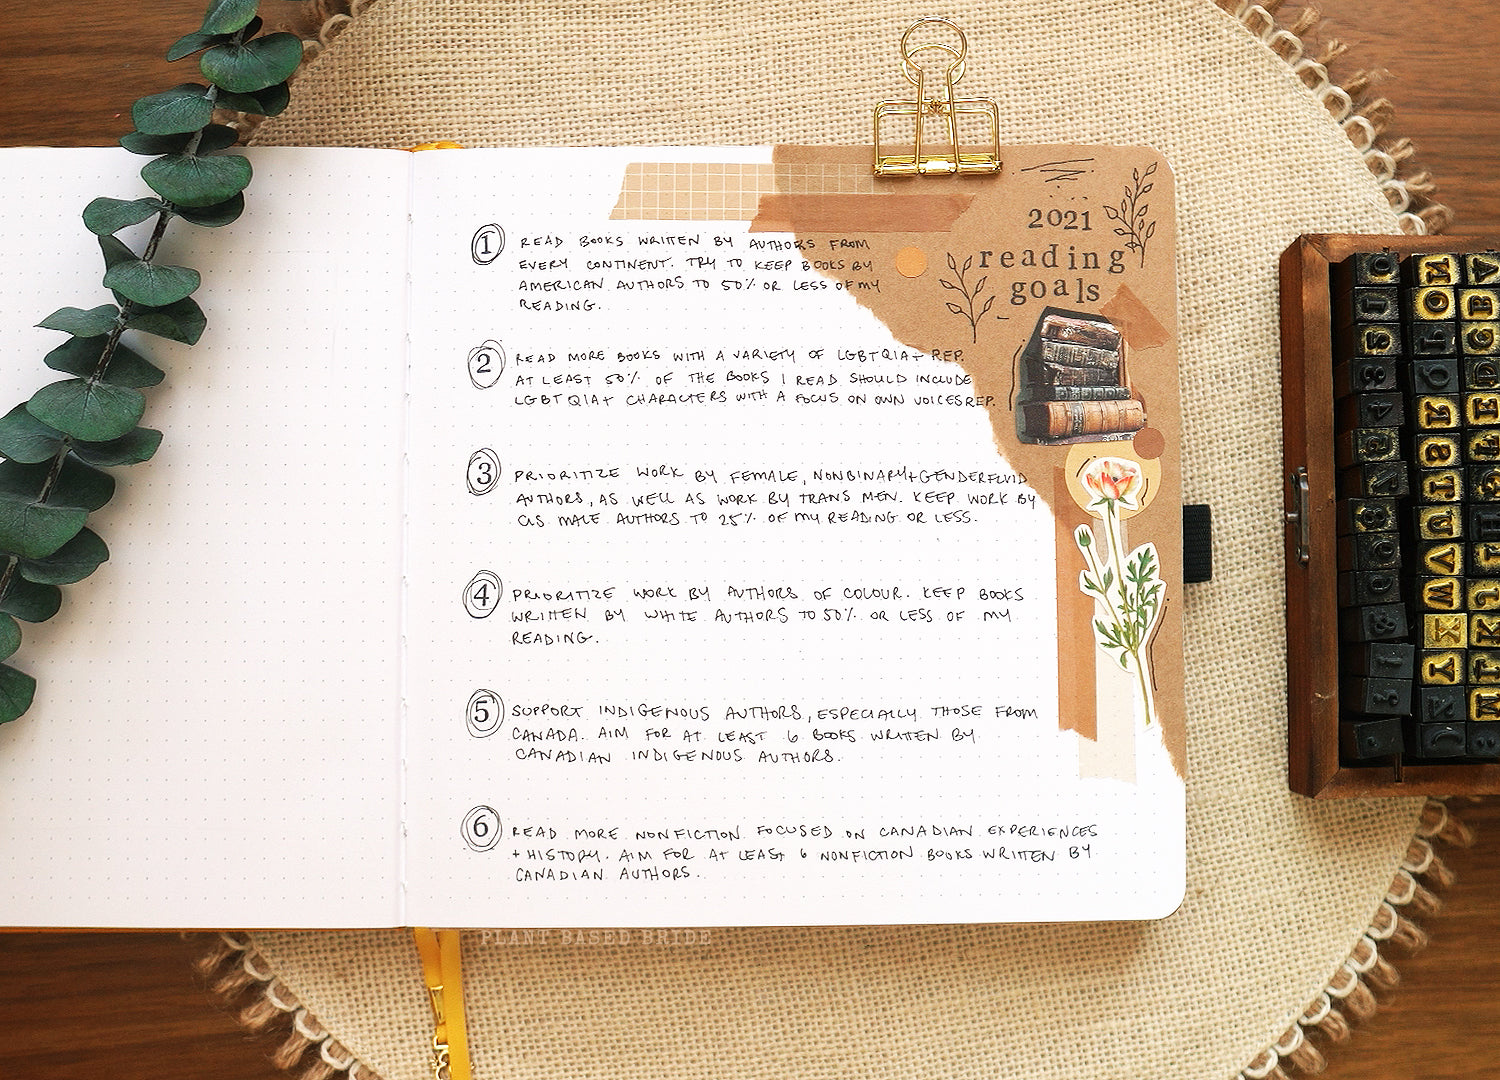 2021
reading
goals
1 READ BOOKS WRITTEN BY AUTHORS FROM
EVERY CONTINENT. TRY TO KEEP BOOKS BY
AMERICAN AUTHORS TO 50% OR LESS OF MY
READING.
2 READ MORE BOOKS WITH A VARIETY OF LGBTQIA+ REP.
AT LEAST 50% OF THE BOOKS I READ SHOULD INCLUDE
LGBTQIA+ CHARACTERS WITH A FOCUS ON OWN VOICES REP.
3 PRIORITIZE WORK BY FEMALE, NONBINARY+GENDERFLUID
AUTHORS, AS WELL AS WORK BY TRANS MEN. KEEP WORK BY
CIS MALE AUTHORS TO 25% OF MY READING OR LESS.
4 PRIORITIZE WORK BY AUTHORS OF COLOUR. KEEP BOOKS
WRITTEN BY WHITE AUTHORS TO 50% OR LESS OF MY
READING.
5 SUPPORT INDIGENOUS AUTHORS, ESPECIALLY THOSE FROM
CANADA. AIM FOR AT LEAST 6 BOOKS WRITTEN BY
CANADIAN INDIGENOUS AUTHORS.
6 READ MORE NONFICTION FOCUSED ON CANADIAN EXPERIENCES
+ HISTORY. AIM FOR AT LEAST 6 NONFICTION BOOKS WRITTEN BY
CANADIAN AUTHORS.
PLANT BASED BRIDE